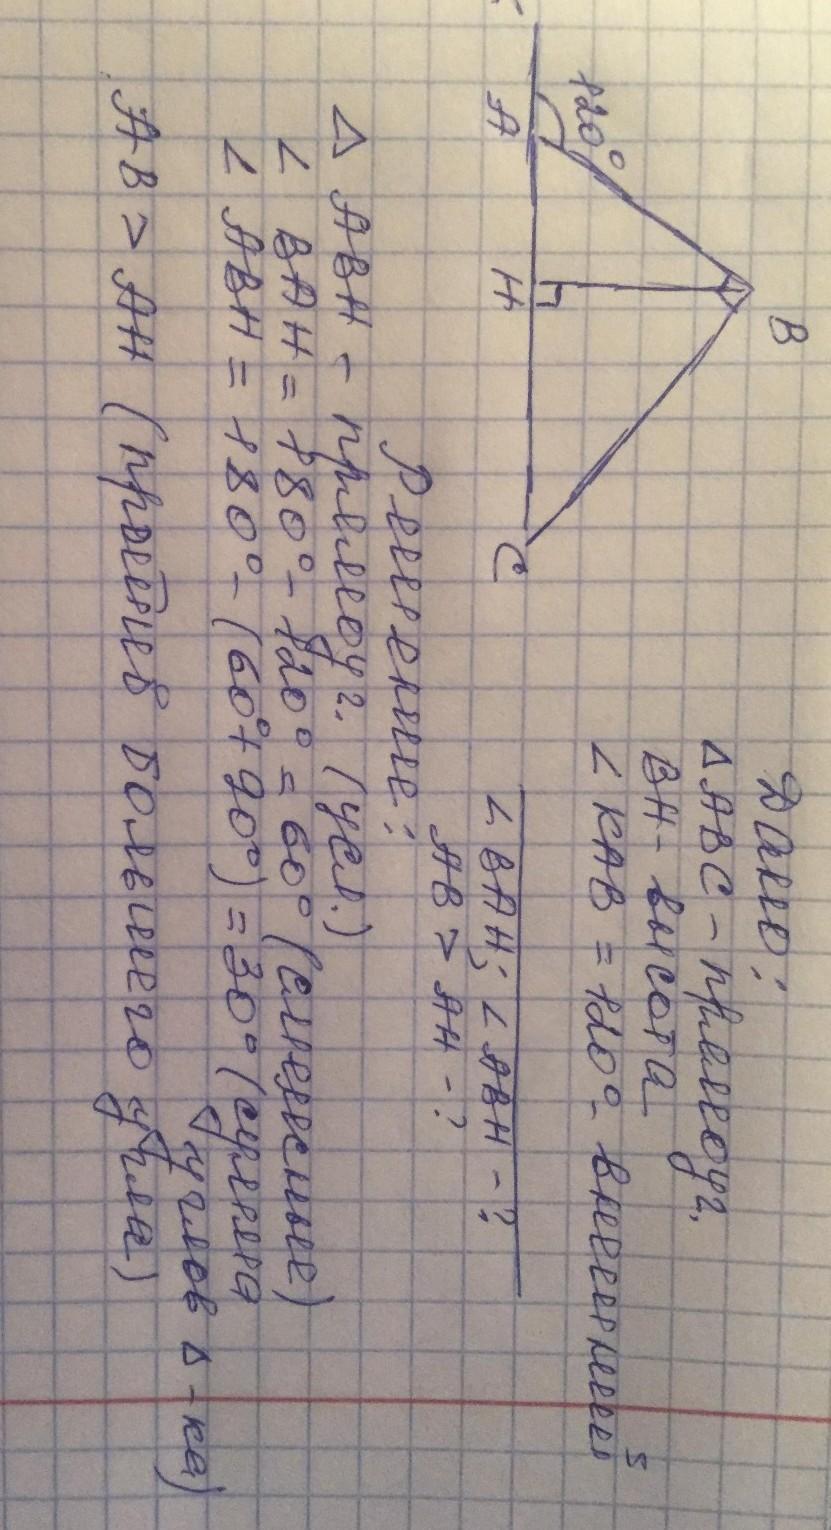 Дано:
△ ABC - прямоуг.
BH - высота
∠ KAB = 120° - внешний
∠ BAH; ∠ ABH - ?
AB > AH - ?
120°
B
A
H
C
Решение:
△ ABH - прямоуг. (усл.)
∠ BAH = 180° - 120° = 60° (смежные)
∠ ABH = 180° - (60° + 90°) = 30° (сумма
углов △ - ка)
AB > AH (против большего угла)